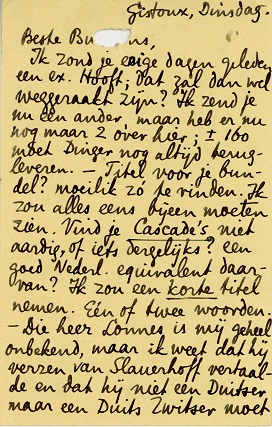 Gistoux, Dinsdag.
Beste Bu ens,
Ik zond je enige dagen geleden
een ex. Hooft; dat zal dan wel
weggeraakt zijn? Ik zend je
nu een ander, maar heb er nu
nog maar 2 over hier; ± 160
moet Dinger nog altijd terug-
leveren. — Titel voor je bun-
del? moeilik zó te vinden. Ik
zou alles eens bijeen moeten
zien. Vind je Cascade's niet
aardig, of iets dergelijks? een
goed Nederl. equivalent daar-
van? Ik zou een korte titel
nemen. Eén of twee woorden.
— Die heer Lonnes is mij geheel
onbekend, maar ik weet dat hij
verzen van Slauerhoff vertaal-
de en dat hij niet een Duitser
maar een Duits Zwitser moet